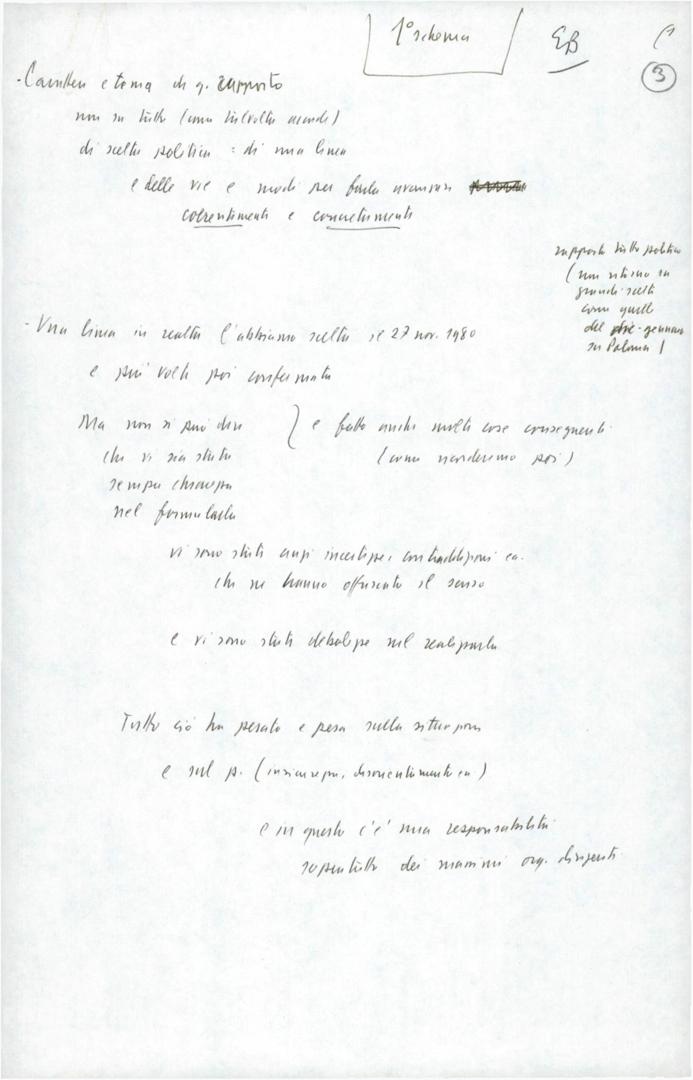 1° schema
EB
3
- Carattere e tema di q. rapporto
non su tutto (come talvolta accade)
di scelta politica = di una linea
e delle vie e modi per farla avanzare
coerentemente e concretamente
rapporto tutto politico
(non ritorno su
grandi scelti
come quelle
del gennaio
su Polonia)
- Una linea in realtà l'abbiamo scelta il 27 nov. 1980
e più volte poi confermata
Ma non si può dire } e fatto anche molte cose conseguenti
che vi sia stata (come ricorderemo poi)
sempre chiarezza
nel formularla
vi sono stati anzi incertezze, contraddizioni ec.
che ne hanno offuscato il senso
e vi sono state debolezze nel realizzarla
Tutto ciò ha pesato e pesa sulla situazione
e sul p. (insicurezza, disorientamento ec)
e in questo c'è una responsabilità
soprattutto dei massimi org. dirigenti